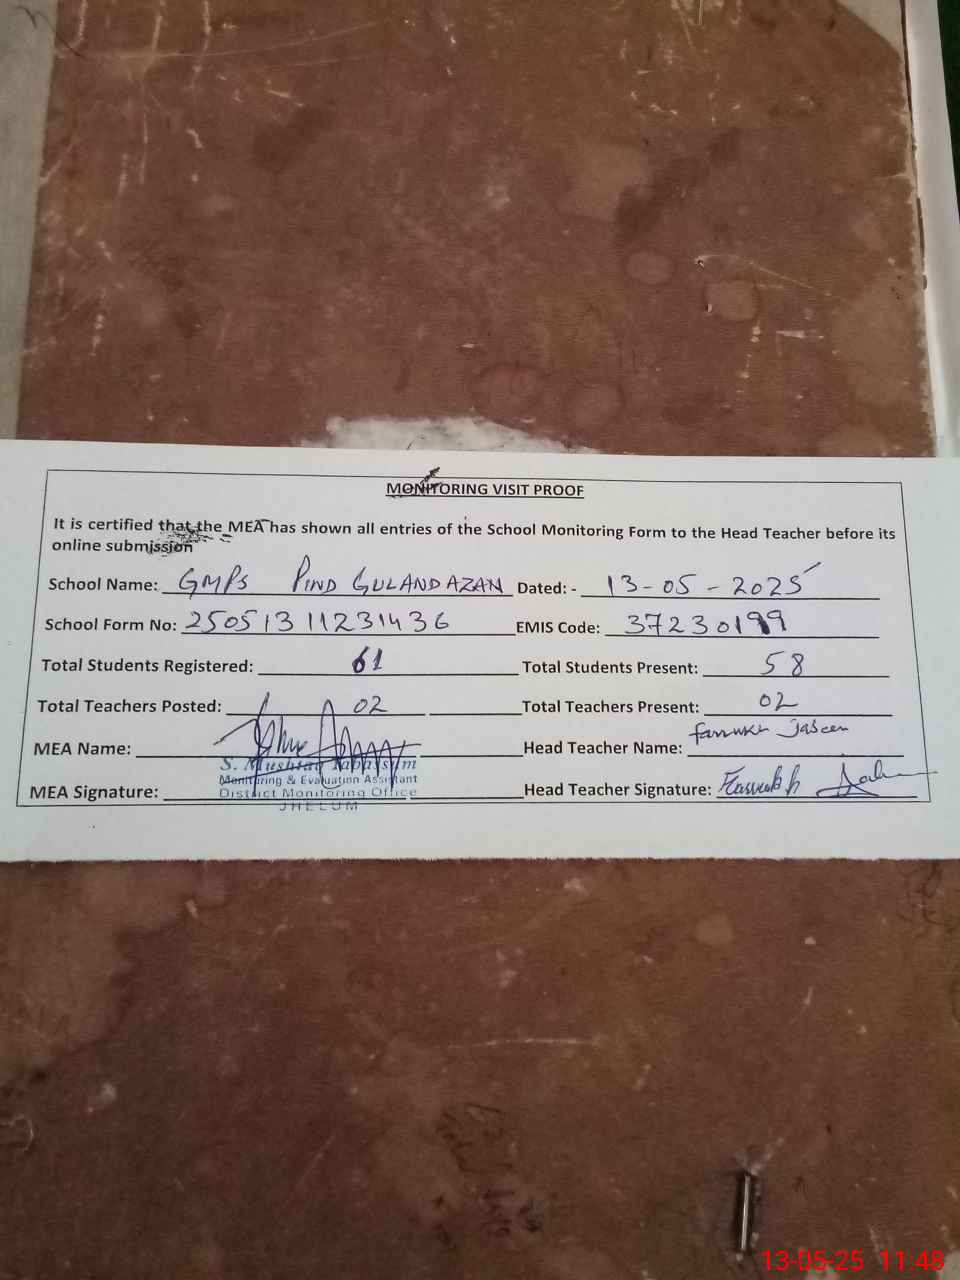 MONITORING VISIT PROOF
It is certified that the MEA has shown all entries of the School Monitoring Form to the Head Teacher before its
online submission
School Name: GMPS PIND GULANDAZAN Dated: - 13-05-2025
School Form No: 250513 11231436 EMIS Code: 37230199
Total Students Registered: 61 Total Students Present: 58
Total Teachers Posted: 02 Total Teachers Present: 02
MEA Name: Head Teacher Name: Jabeen
S. Mushtaq Tabassum
Monitoring & Evaluation Assistant
MEA Signature: District Monitoring Office Head Teacher Signature:
JHELUM
13-05-25 11:48